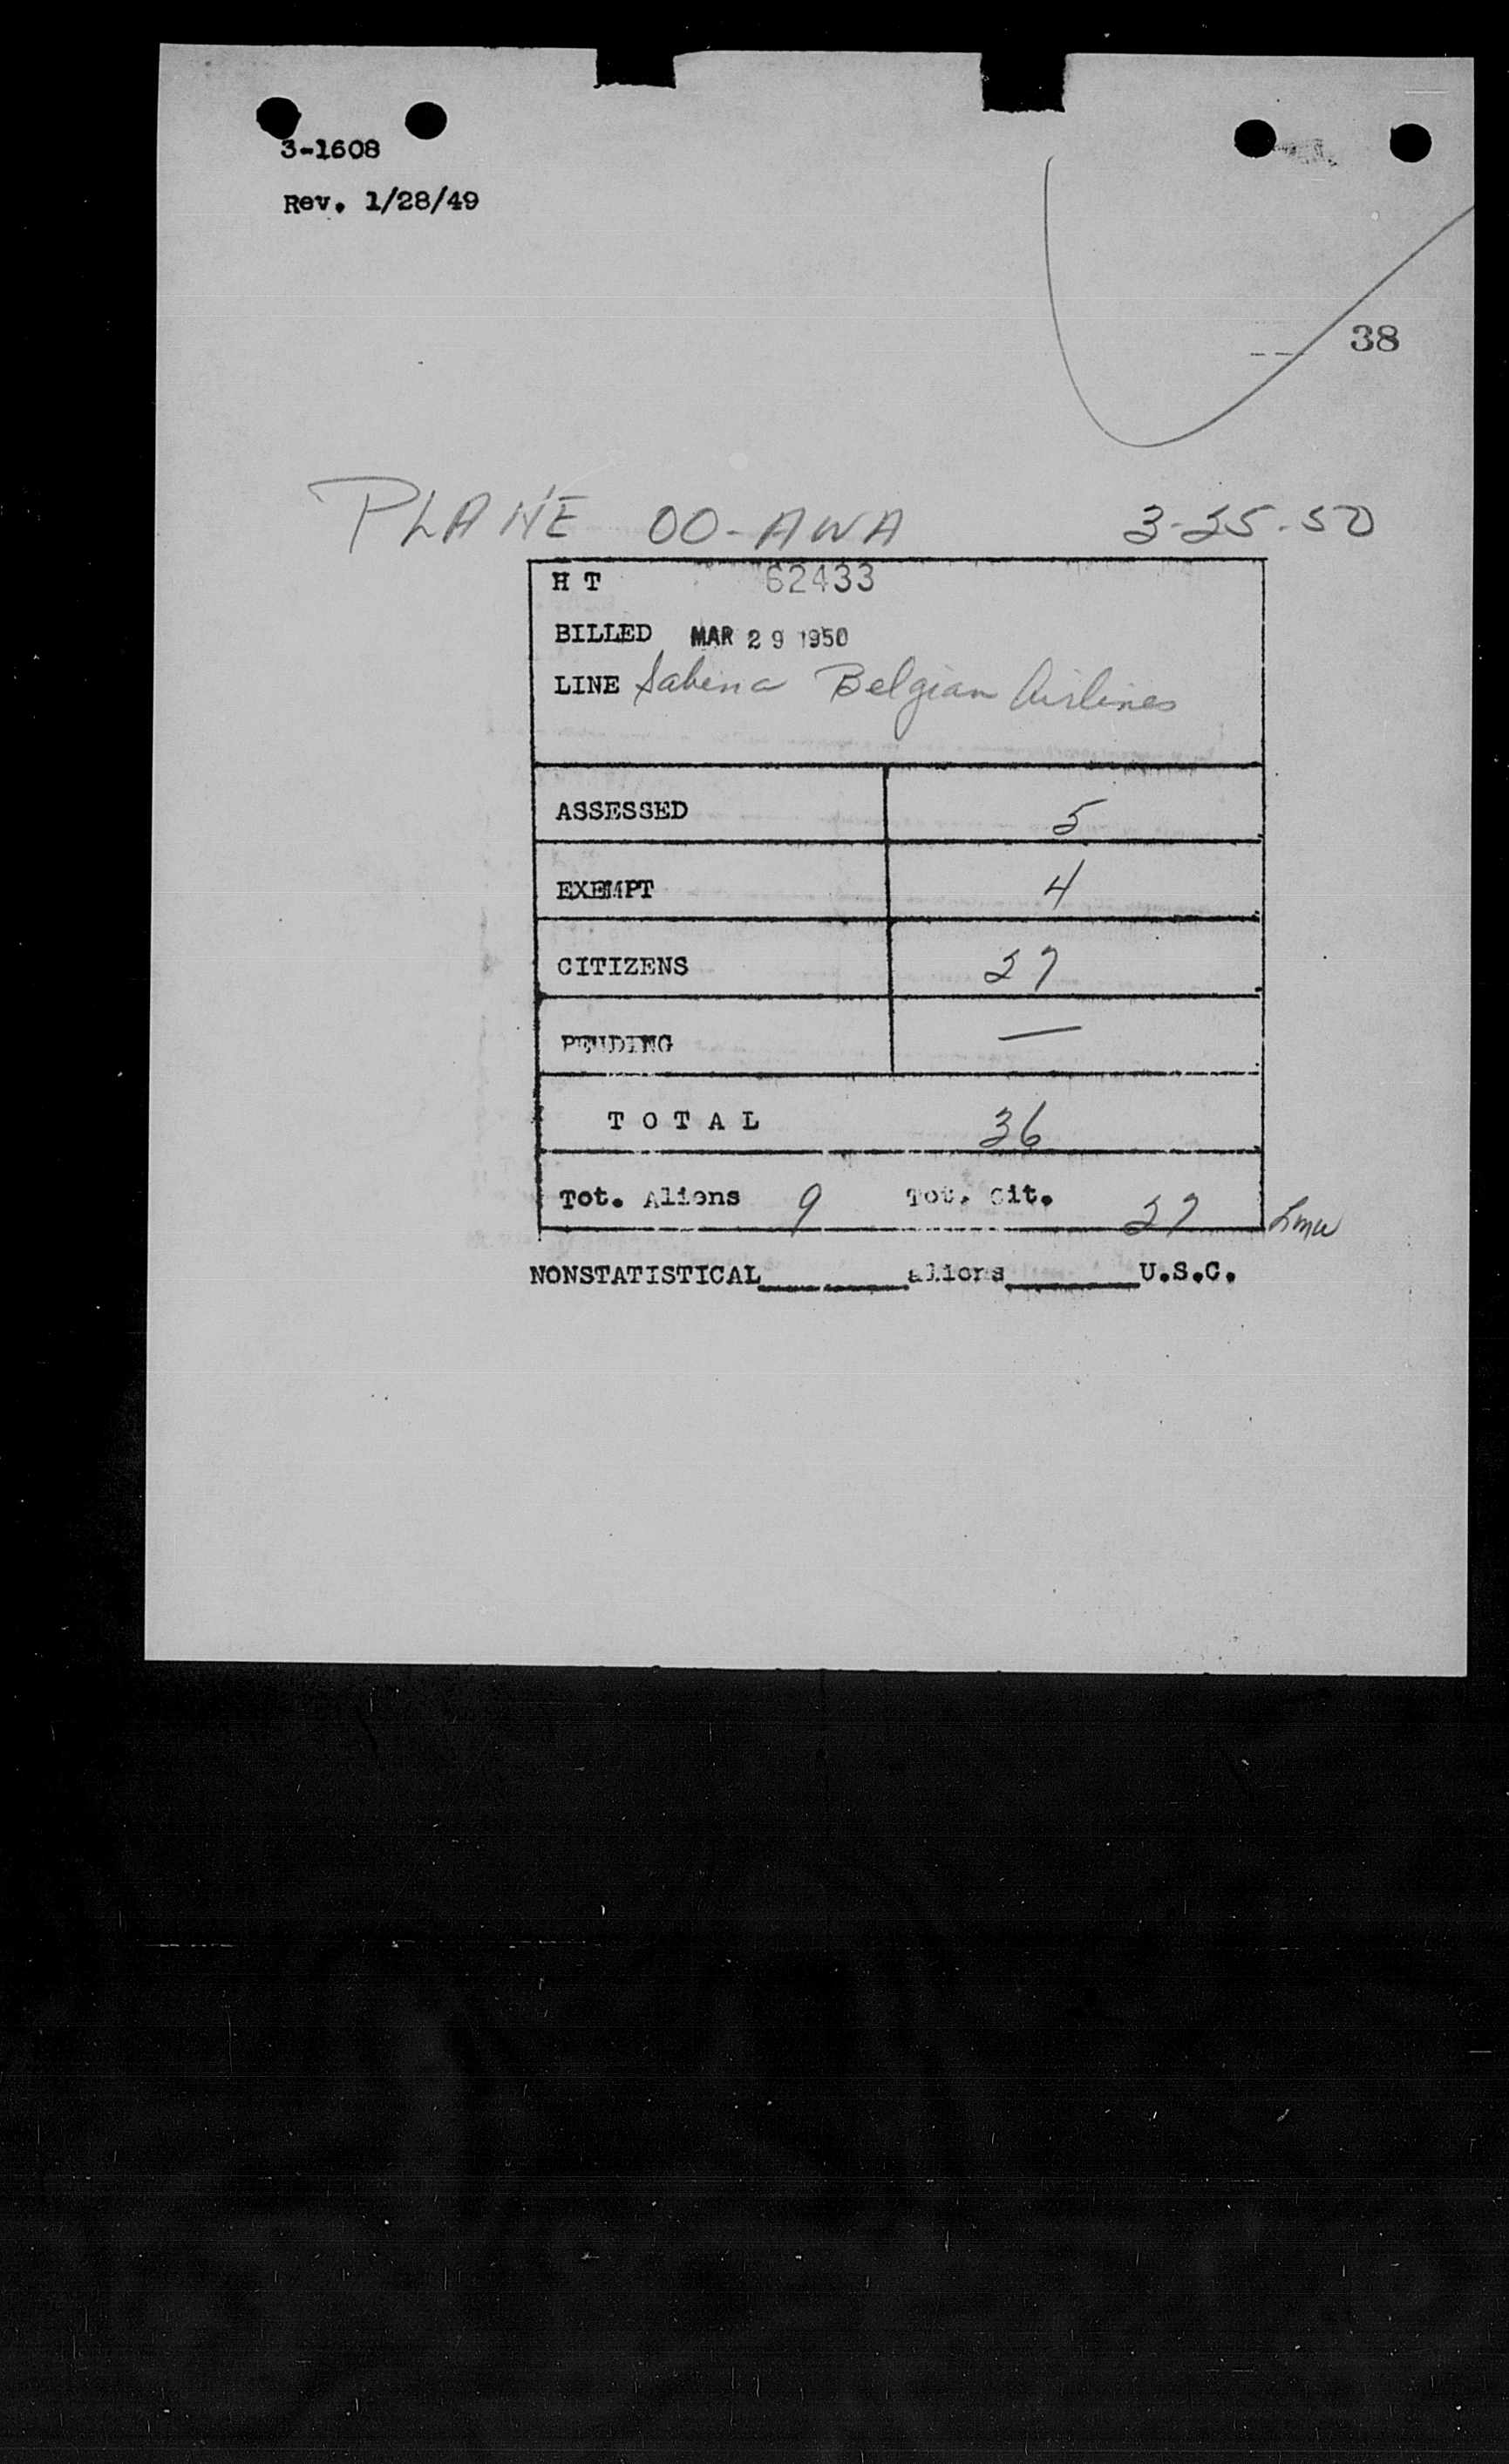 3-1608
Rev. 1/28/49
38
PLANE OO-AWA 3-25-50
H T 62433
BILLED MAR 29 1950
LINE Sabena Belgian Airlines
ASSESSED 5
EXEMPT 4
CITIZENS 27
PENDING —
TOTAL 36
Tot. Aliens 9 Tot. Cit. 27
NONSTATISTICAL________aliens________U.S.C.